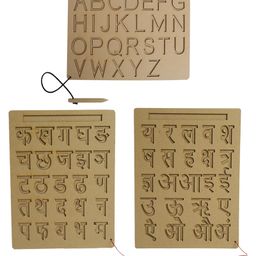 ABCDEFG
HIJKLMN
OPQRSTU
VWXYZ
क ख ग घ ङ
च छ ज झ ञ
ट ठ ड ढ ण
त थ द ध न
प फ ब भ म
य र ल व श
ष स ह क्ष त्र
ज्ञ अ आ इ ई
उ ऊ ऋ ए
ऐ ओ औ अं